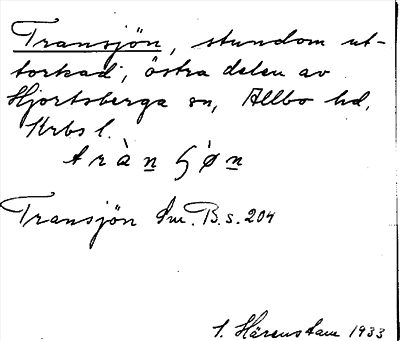 Transjön, stundom ut-
torkad; östra delen av
Hjortsberga sn, Allbo hd,
Krbs l.
tràn ʃø̀n
Transjön Sm. B. s. 204
1933